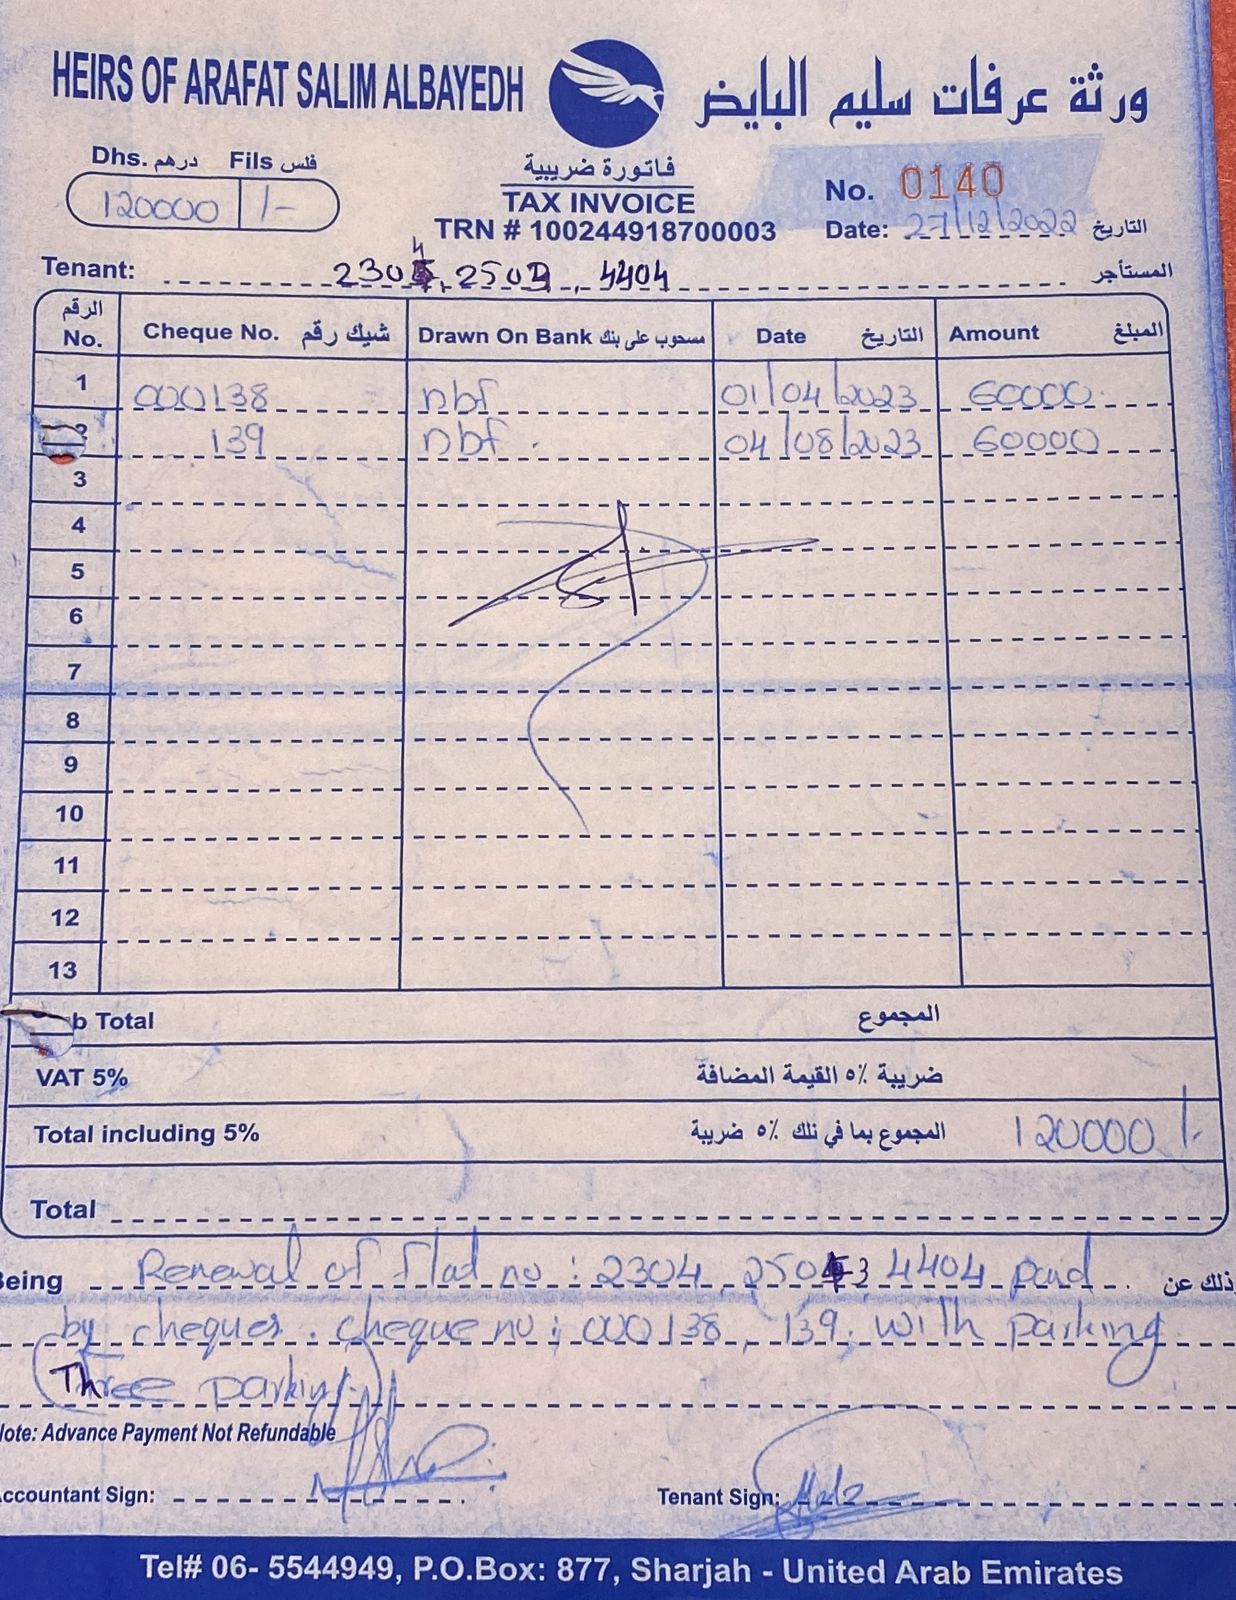 HEIRS OF ARAFAT SALIM ALBAYEDH ورثة عرفات سليم البايض
Dhs. درهم Fils فلس
120000 /-
فاتورة ضريبية
TAX INVOICE
TRN # 100244918700003
No. 0140
Date: 27/12/2022 التاريخ
Tenant: 2304, 2503, 4404 المستأجر
الرقم No. Cheque No. شيك رقم Drawn On Bank مسحوب على بنك Date التاريخ Amount المبلغ
1 000138 nbf 01/04/2023 60000
2 139 nbf 04/08/2023 60000
3
4
5
6
7
8
9
10
11
12
13
b Total المجموع
VAT 5% ضريبة ٥٪ القيمة المضافة
Total including 5% المجموع بما في ذلك ٥٪ ضريبة 120000 /-
Total
Being Renewal of flat no: 2304, 2503 4404 paid. وذلك عن
by cheques. cheque no; 000138, 139. with parking
Three parking
Note: Advance Payment Not Refundable
Accountant Sign: Tenant Sign:
Tel# 06- 5544949, P.O.Box: 877, Sharjah - United Arab Emirates